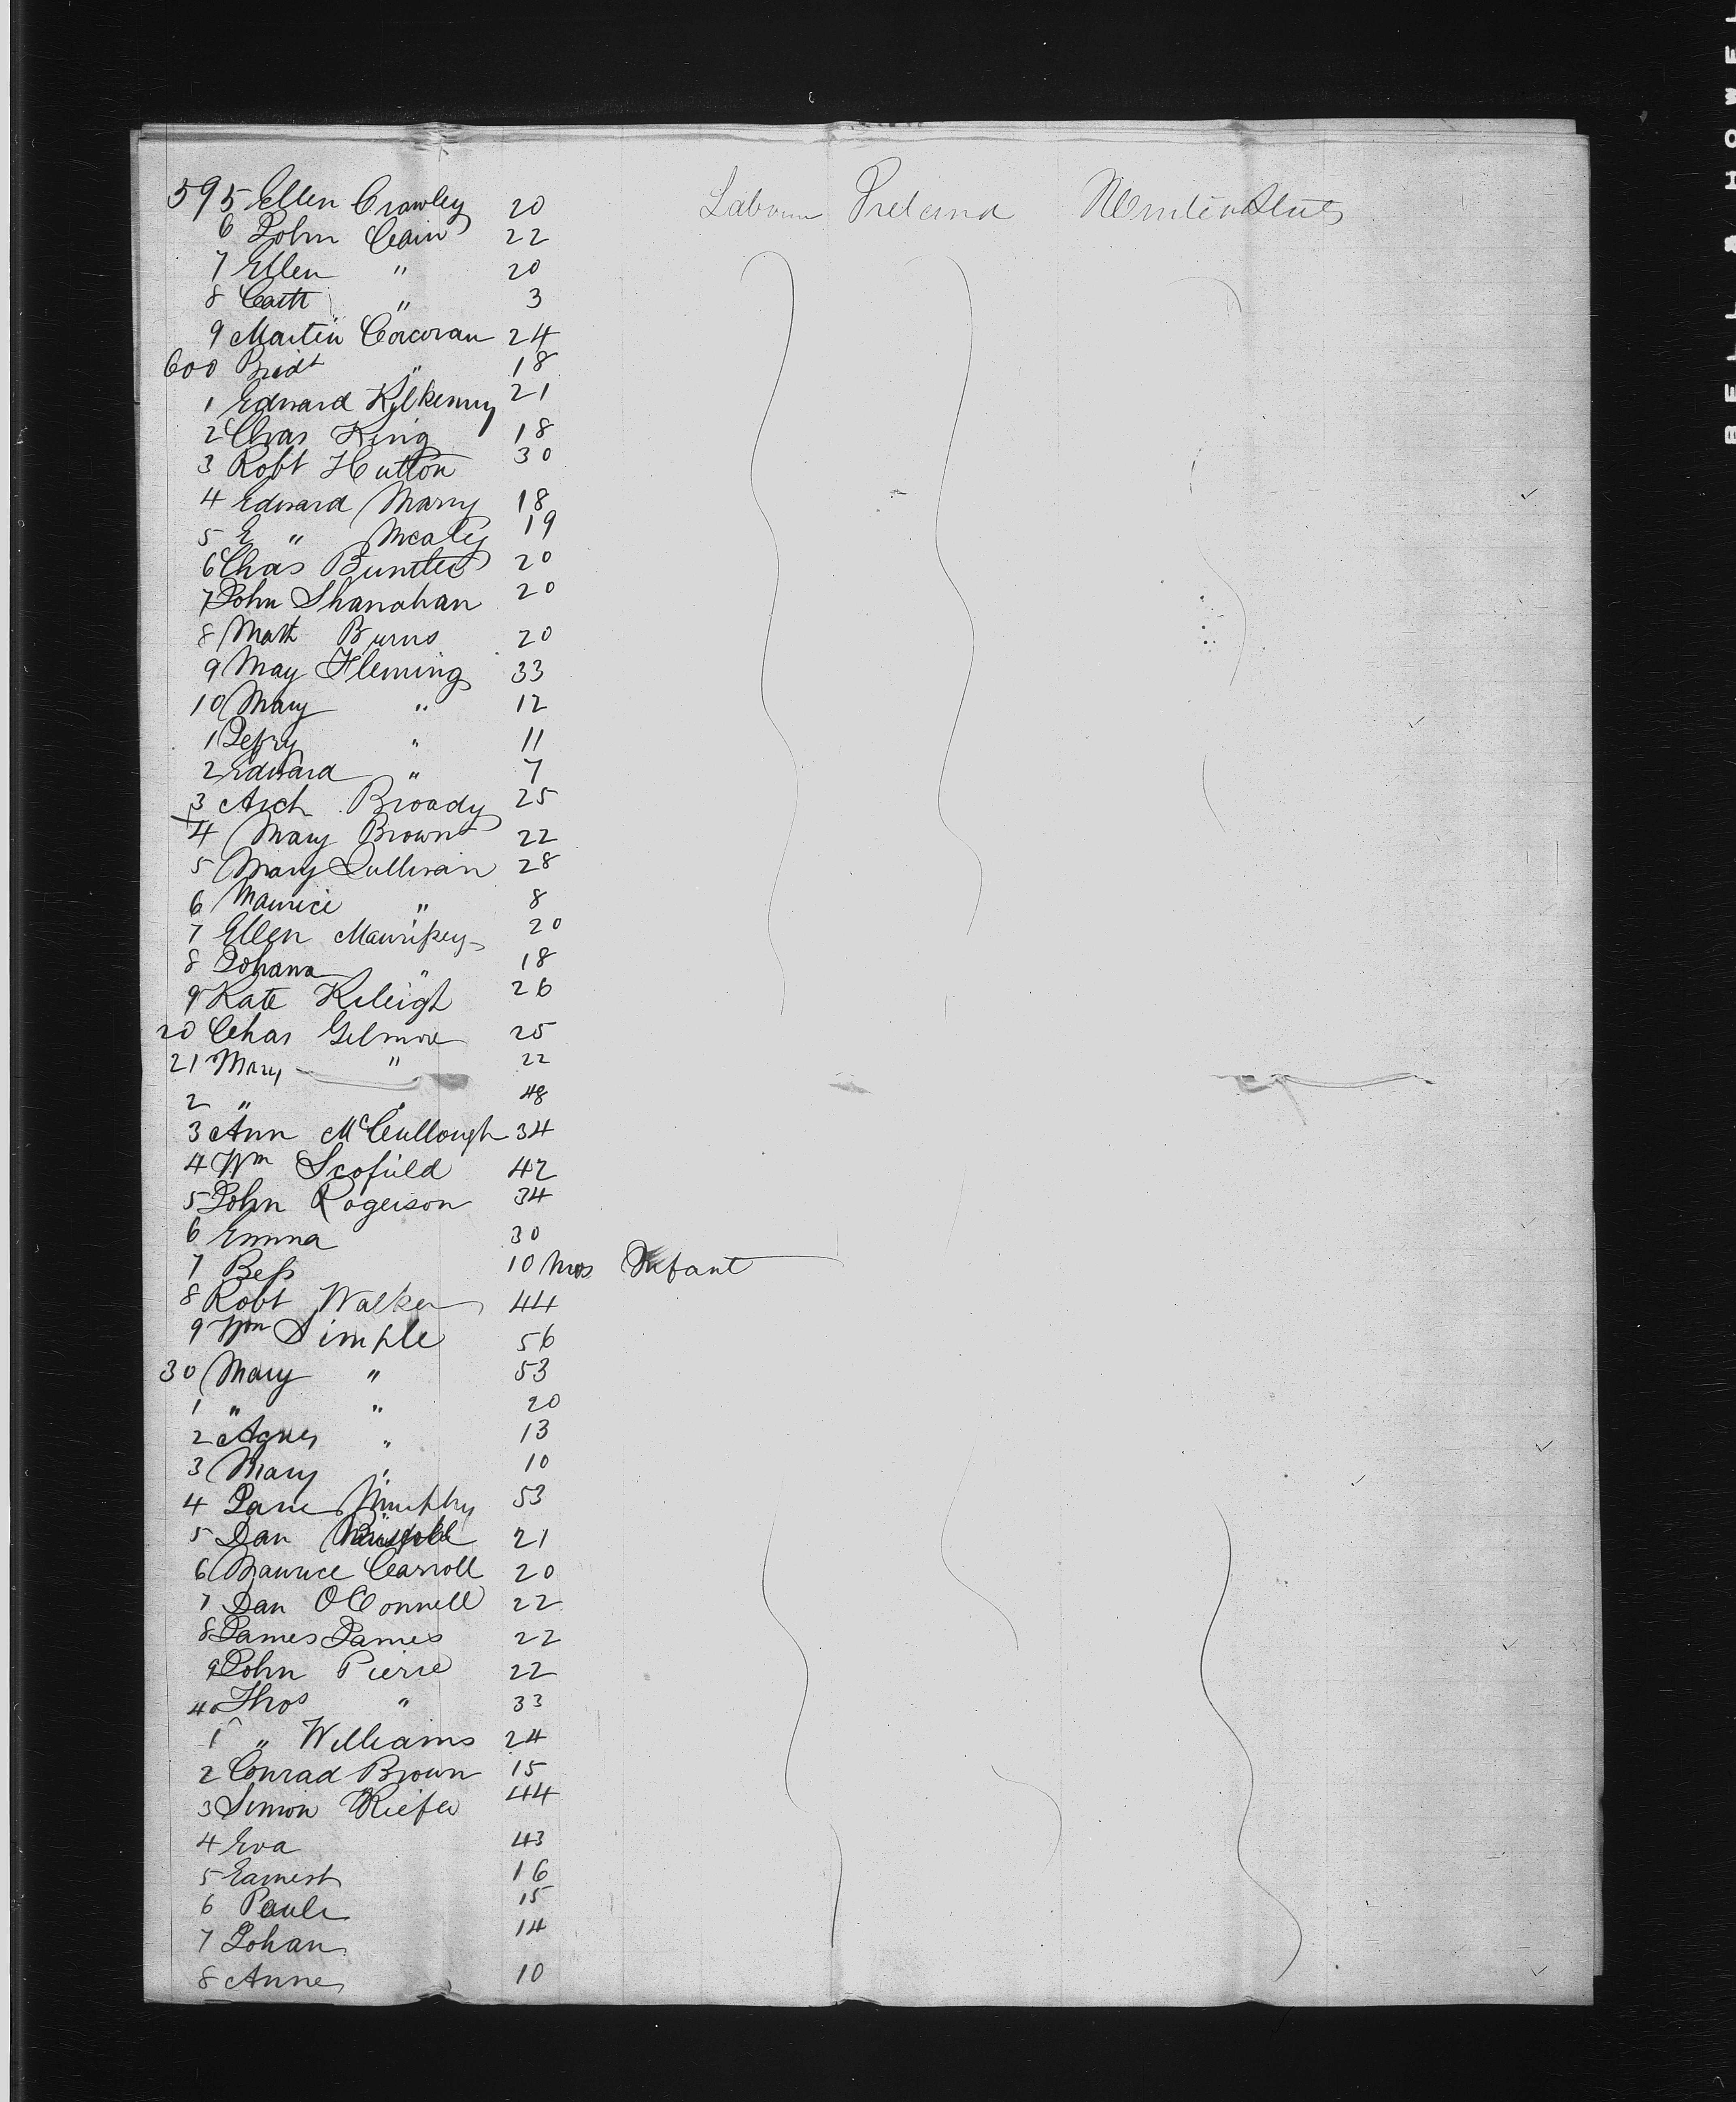 595 Ellen Crowley 20 Labourer Ireland United States
6 John Cain 22
7 Ellen " 20
8 Cath " 3
9 Martin Corcoran 24
600 Bridt " 18
1 Edward Kilkenny 21
2 Chas King 18
3 Robt Hutton 30
4 Edward Marry 18
5 E " Mealy 19
6 Chas Buntee 20
7 John Shanahan 20
8 Matt Burns 20
9 May Fleming 33
10 Mary " 12
1 Jeffry " 11
2 Edward " 7
3 Arch Broady 25
4 Mary Brown 22
5 Mary Sullivan 28
6 Maurice " 8
7 Ellen 20
8 Johana " 18
9 Kate Kileigh 26
20 Chas Gilmore 25
21 Mary " 22
2 " " 48
3 Ann McCullough 34
4 Wm Scofield 42
5 John Rogerson 34
6 Emma 30
7 Bess 10 mos Infant
8 Robt Walker 44
9 Wm Simple 56
30 Mary " 53
1 " " 20
2 Agnes " 13
3 Mary " 10
4 Jane Murphy 53
5 Dan 21
6 Maurice Carroll 20
7 Dan OConnell 22
8 James James 22
9 John Pierre 22
40 Thos " 33
1 " Williams 24
2 Conrad Brown 15
3 Simon Kiefer 44
4 Eva 43
5 Earnest 16
6 Paule 15
7 Johan 14
8 Anne 10
BELL & HOWEL